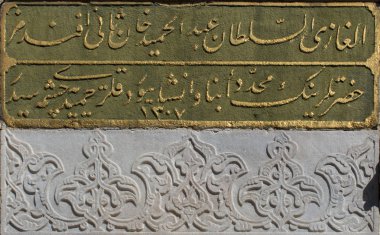 الغازى السلطان عبد الحميد خان ثانى افندمز
حضرتلرينك مجددا بنا وانشا بيوردقلرى حميديه چشمه سيدر
١٣٠٧